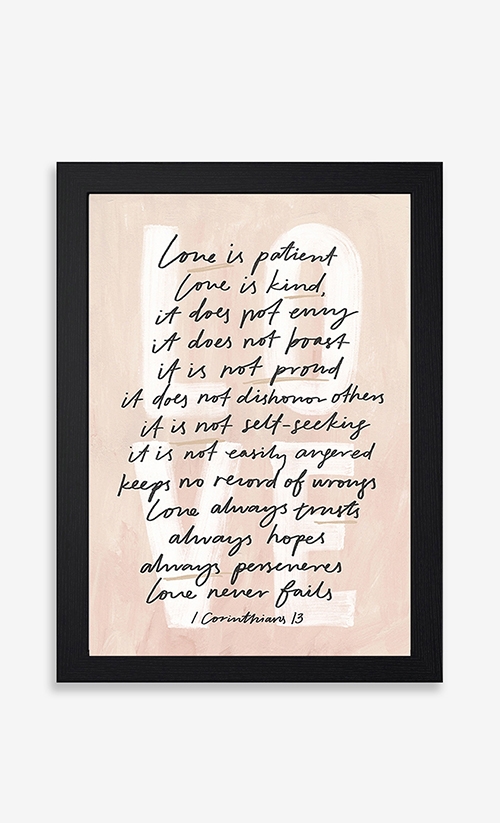 LOVE
Love is patient
love is kind,
it does not envy
it does not boast
it is not proud
it does not dishonor others
it is not self-seeking
it is not easily angered
keeps no record of wrongs
Love always trusts
always hopes
always perseveres
love never fails
1 Corinthians 13